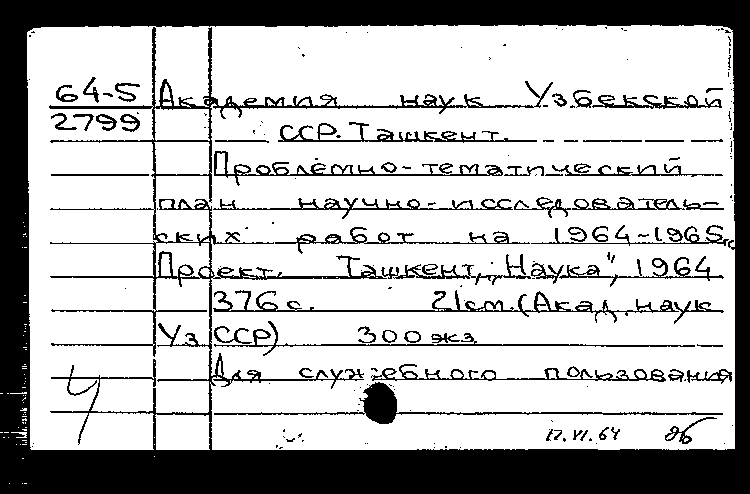 64-5 Академия наук Узбекской
2799 ССР. Ташкент.
Проблемно-тематический
план научно-исследователь-
ских работ на 1964-1965гг.
Проект. Ташкент, "Наука", 1964
376 с. 21см. (Акад. наук
Уз ССР) 300 экз.
Для служебного пользования
Ч
17.VI.64